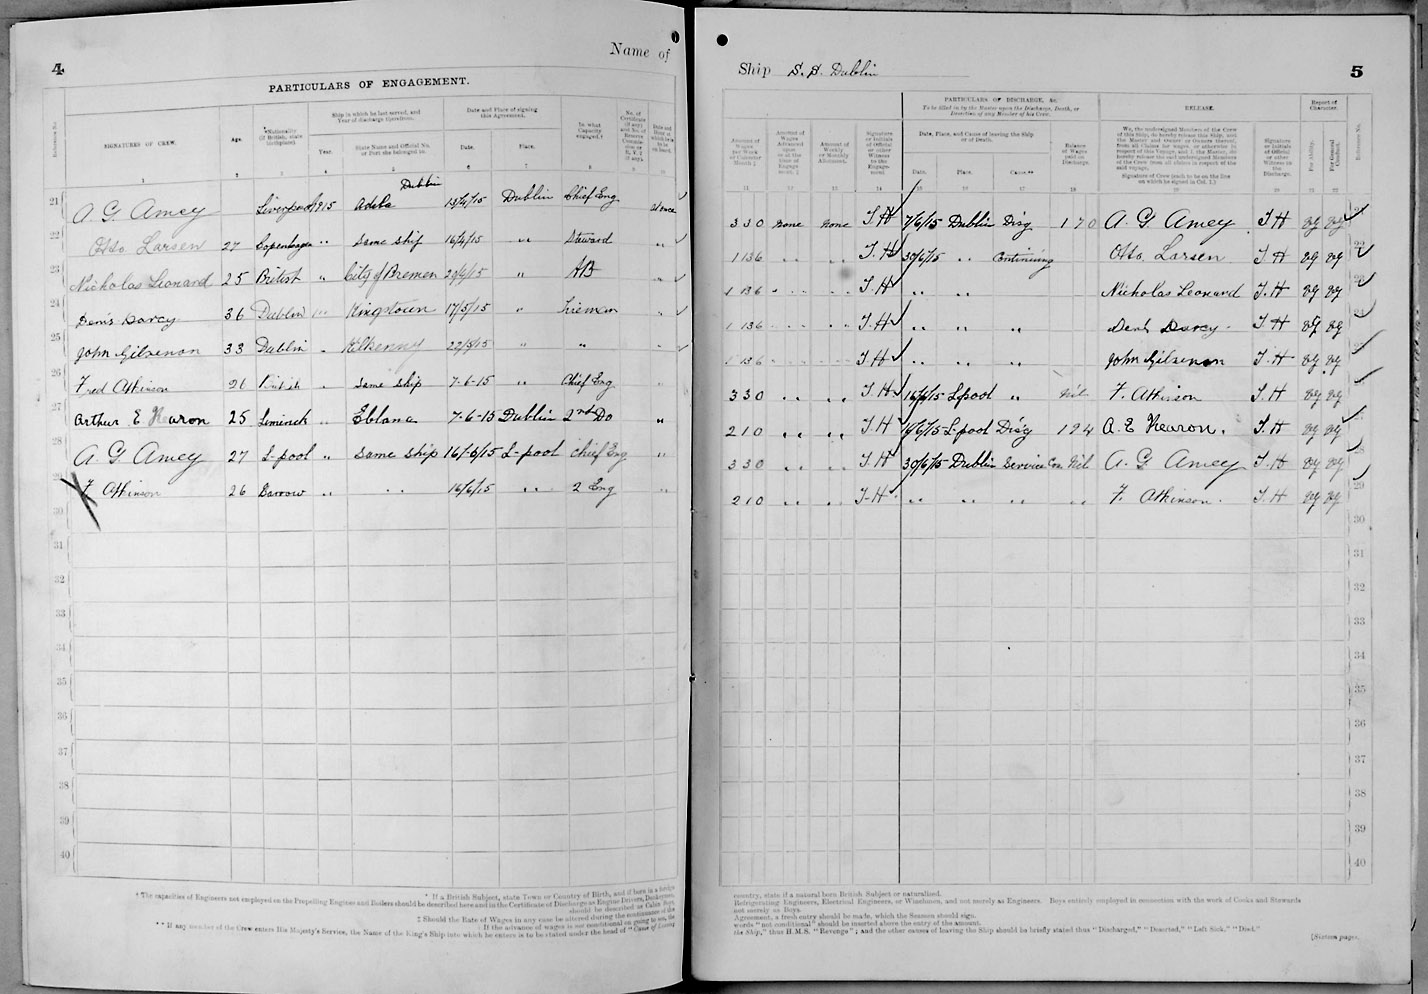 4
Name of
PARTICULARS OF ENGAGEMENT.
Reference No.
SIGNATURES OF CREW.
Age.
*Nationality (if British, state birthplace).
Ship in which he last served, and Year of discharge therefrom.
Year.
State Name and Official No. or Port she belonged to.
Date and Place of signing this Agreement.
Date.
Place.
In what Capacity engaged.†
1 2 3 4 5 6 7 8 9 10
Dublin
21 A. G. Amey Liverpool 1915 Adela 13/4/15 Dublin Chief Eng at once
22 Otto Larsen 27 Copenhagen " same ship 16/4/15 " Steward "
23 Nicholas Leonard 25 " City of Bremen " AB "
24 Denis Darcy 36 Dublin " Kingstown 17/5/15 " Fireman "
25 John Gilsenon 33 Dublin " Kilkenny 22/5/15 " " "
26 Fred Atkinson 26 British " same ship 7-6-15 " Chief Eng "
27 Arthur E Hearon 25 Limerick " Eblana 7-6-15 Dublin 2nd Do "
28 A. G. Amey 27 L-pool " same ship 16/6/15 L-pool Chief Eng "
29 F Atkinson 26 Barrow " " " 16/6/15 " " 2 Eng "
30
31
32
33
34
35
36
37
38
39
40
* If a British Subject, state Town or Country of Birth, and if born in a foreign
† The capacities of Engineers not employed on the Propelling Engines and Boilers should be described here and in the Certificate of Discharge as Engine Drivers, Donkeymen,
should be described as Cabin Boys,
‡ Should the Rate of Wages in any case be altered during the continuance of the
If the advance of wages is not conditional on going to sea, the
** If any member of the Crew enters His Majesty's Service, the Name of the King's Ship into which he enters is to be stated under the head of "Cause of Leaving
Ship S.S. Dublin
5
PARTICULARS OF DISCHARGE, &c.
To be filled in by the Master upon the Discharge, Death, or Desertion of any Member of his Crew.
RELEASE.
Report of Character.
Amount of Wages per Week or Calendar Month ‡
Amount of Wages Advanced upon or at the time of Engagement. ‡
Amount of Weekly or Monthly Allotment.
Signature or Initials of Official or other Witness to the Engagement
Date, Place, and Cause of leaving the Ship or of Death.
Date.
Place.
Cause.**
Balance of Wages paid on Discharge.
We, the undersigned Members of the Crew of this Ship, do hereby release this Ship, and the Master and Owner or Owners thereof, from all Claims for wages or otherwise in respect of this Voyage, and I, the Master, do hereby release the said undersigned Members of the Crew from all claims in respect of the said voyage.
Signature of Crew (each to be on the line on which he signed in Col. 1.)
Signature or Initials of Official or other Witness to the Discharge.
For Ability.
For General Conduct.
Reference No.
11 12 13 14 15 16 17 18 19 20 21 22
3 3 0 none none T. H 7/6/15 Dublin Dis'g 1 7 0 A. G. Amey T H vg vg 21
1 13 6 " " " " T. H 30/6/15 " " Continuing Otto Larsen T. H vg vg 22
1 13 6 " " " " T. H " " " " Nicholas Leonard T. H vg vg 23
1 13 6 " " " " T. H " " " " " " Denis Darcy T. H vg vg 24
1 13 6 " " " " T. H " " " " " " John Gilsenon T. H vg vg
3 3 0 " " " " T. H 16/6/15 L-pool " Nil F. Atkinson T. H vg vg
2 1 0 " " " " T. H L-pool Dis'g 1 9 4 A. E Hearon. T. H vg vg
3 3 0 " " " " T. H 30/6/15 Dublin Service Con Nil A. G. Amey T. H vg vg 28
2 1 0 " " " " T-H " " " " " " " " F. Atkinson. T. H vg vg 29
30
31
32
33
34
35
36
37
38
39
40
country, state if a natural born British Subject or naturalised.
Refrigerating Engineers, Electrical Engineers, or Winchmen, and not merely as Engineers. Boys entirely employed in connection with the work of Cooks and Stewards
not merely as Boys.
Agreement, a fresh entry should be made, which the Seamen should sign.
words "not conditional" should be inserted above the entry of the amount.
the Ship," thus H.M.S. "Revenge"; and the other causes of leaving the Ship should be briefly stated thus "Discharged," "Deserted," "Left Sick," "Died."
[Sixteen pages.